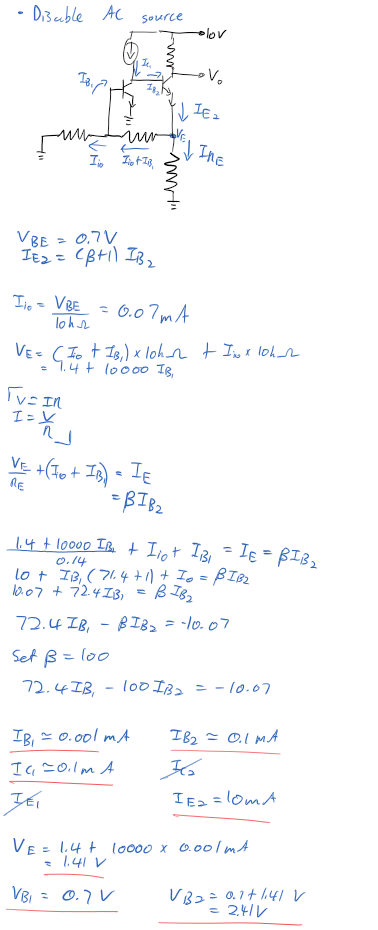 • Disable AC source
10V
I_C1
V_o
I_B1
I_B2
I_E2
V_E
I_RE
I_io
I_io+I_B1
V_BE = 0.7V
I_E2 = (β+1) I_B2
I_io = V_BE / 10kΩ = 0.07mA
V_E = (I_io + I_B1) × 10kΩ + I_io × 10kΩ
= 1.4 + 10000 I_B1
V = IR
I = V/R
V_E/R_E + (I_io + I_B1) = I_E
= βI_B2
(1.4 + 10000 I_B1)/0.14 + I_io + I_B1 = I_E = βI_B2
10 + I_B1 (71.4+1) + I_io = βI_B2
10.07 + 72.4 I_B1 = β I_B2
72.4 I_B1 - βI_B2 = -10.07
Set β = 100
72.4 I_B1 - 100 I_B2 = -10.07
I_B1 ≃ 0.001 mA I_B2 ≃ 0.1 mA
I_C1 ≃ 0.1m A I_C2
I_E1 I_E2 = 10mA
V_E = 1.4 + 10000 × 0.001mA
= 1.41 V
V_B1 = 0.7 V V_B2 = 0.7+1.41 V
= 2.41V